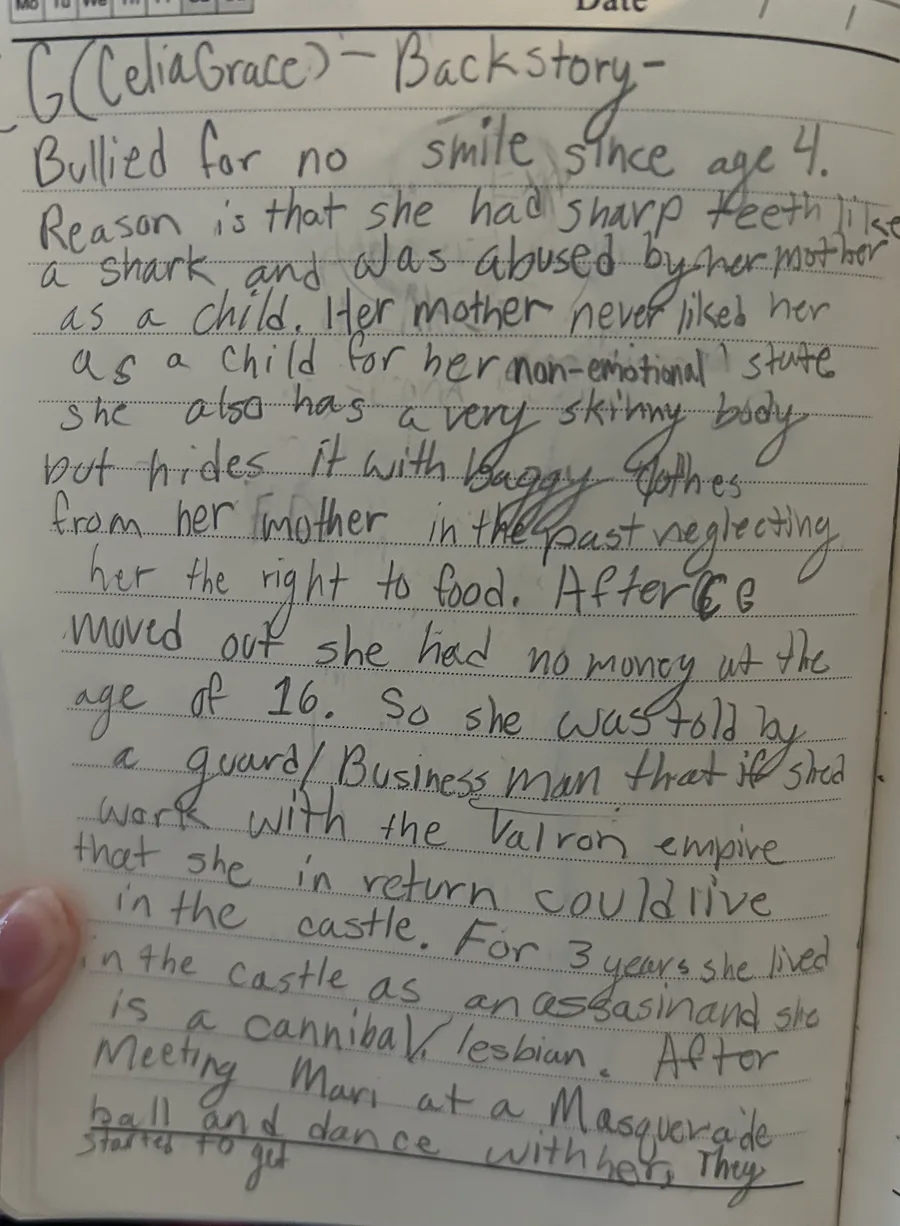 Date / /
CG (CeliaGrace) - Backstory -
Bullied for no smile since age 4.
Reason is that she had sharp teeth like
a shark and was abused by her mother
as a child. Her mother never liked her
as a child for her non-emotional state
she also has a very skinny body
but hides it with baggy clothes
from her mother in the past neglecting
her the right to food. After CG
moved out she had no money at the
age of 16. So she was told by
a guard/Business man that if shed
work with the Valron empire
that she in return could live
in the castle. For 3 years she lived
in the castle as an assasin and she
is a cannibal, lesbian. After
Meeting Mari at a Masquerade
ball and dance with her, They
started to get